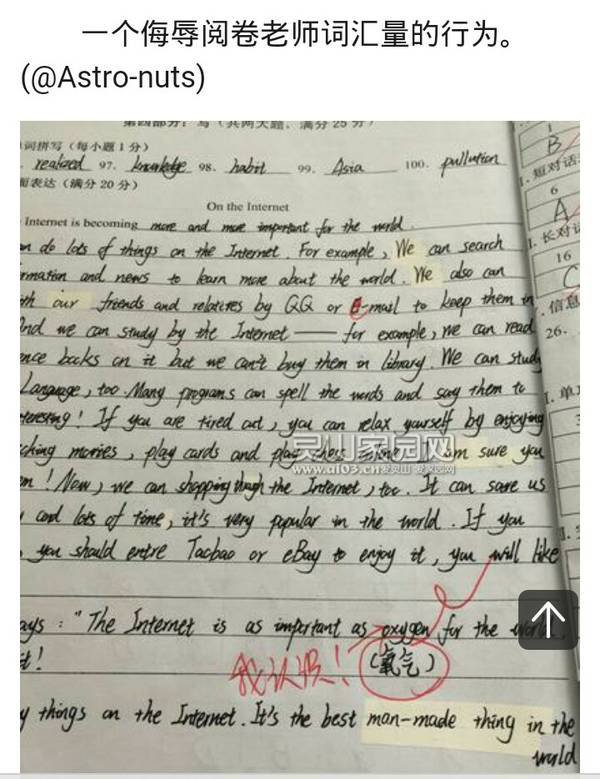 一个侮辱阅卷老师词汇量的行为。
(@Astro-nuts)
第四部分：写（共两大题，满分 25 分）
词拼写（每小题 1 分）
realized 97. knowledge 98. habit 99. Asia 100. pullution
面表达（满分 20 分）
On the Internet
Internet is becoming more and more important for the world.
an do lots of things on the Internet. For example, We can search
rmation and news to learn more about the world. We also can
th our friends and relatires by QQ or e-mail to keep them in
And we can study by the Internet — for example, we can read
nce books on it but we can't buy them in library. We can study
Language, too. Many programs can spell the words and say them to
teresting! If you are tired out, you can relax yourself by enjoying
ching movies, play cards and play chess am sure you
灵山家园网
www.ai03.cn爱灵山 爱家园网
m! Now, we can shopping though the Internet, too. It can save us
and lots of time, it's very popular in the world. If you
, you should entre Taobao or eBay to enjoy it, you will like
ays: "The Internet is as important as oxygen for the world.
it!
我认识！
(氧气)
y things on the Internet. It's the best man-made thing in the
world
1
B
I. 短对话
6
A
I. 长对话
16
C
信息
26.
I. 单